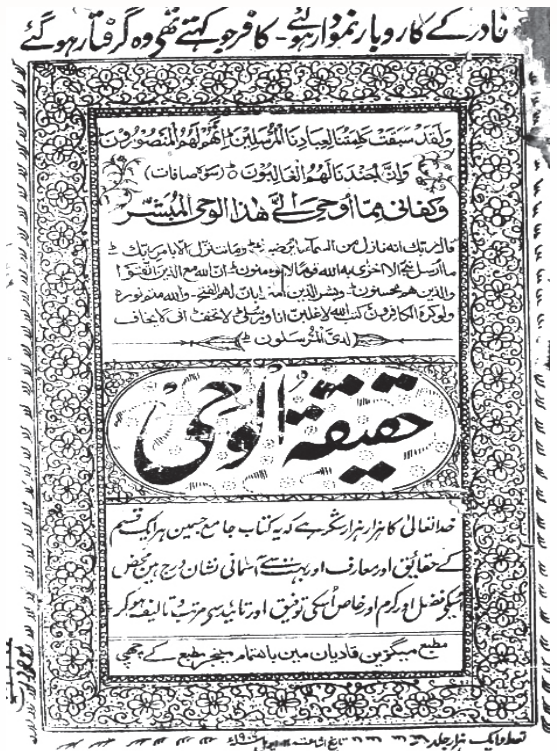 قادر کے کاروبار نمودار ہو گئے - کافر جو کہتے تھے وہ گرفتار ہو گئے
ولقد سبقت كلمتنا لعبادنا المرسلين انهم لهم المنصورون
وان جندنا لهم الغالبون (سورة صافات)
وكفاني بما أوحي الي هذا الوحي المبشر
قال ربك انه نازل من السماء ما يرضيك وما نتنزل الا بامر ربك
ان الله مع الذين اتقوا
والذين هم محسنون وبشر الذين امنوا بان لهم الفتح والله متم نوره
ولو كره الكافرون كتب الله لاغلبن انا ورسلي لا تخف اني لا يخاف
لدي المرسلون
حقیقۃ الوحی
خدا تعالیٰ کا ہزار ہزار شکر ہے کہ یہ کتاب جامع جسمین ہر ایک قسم
کے حقائق اور معارف اور بہت سے آسمانی نشان درج ہین محض
اسکے فضل اور کرم اور خاص اسکی توفیق اور تائید سے مرتب و تالیف ہو کر
مطبع میگزین قادیان مین باہتمام مینجر مطبع کے چھپی
تعداد ایک ہزار جلد